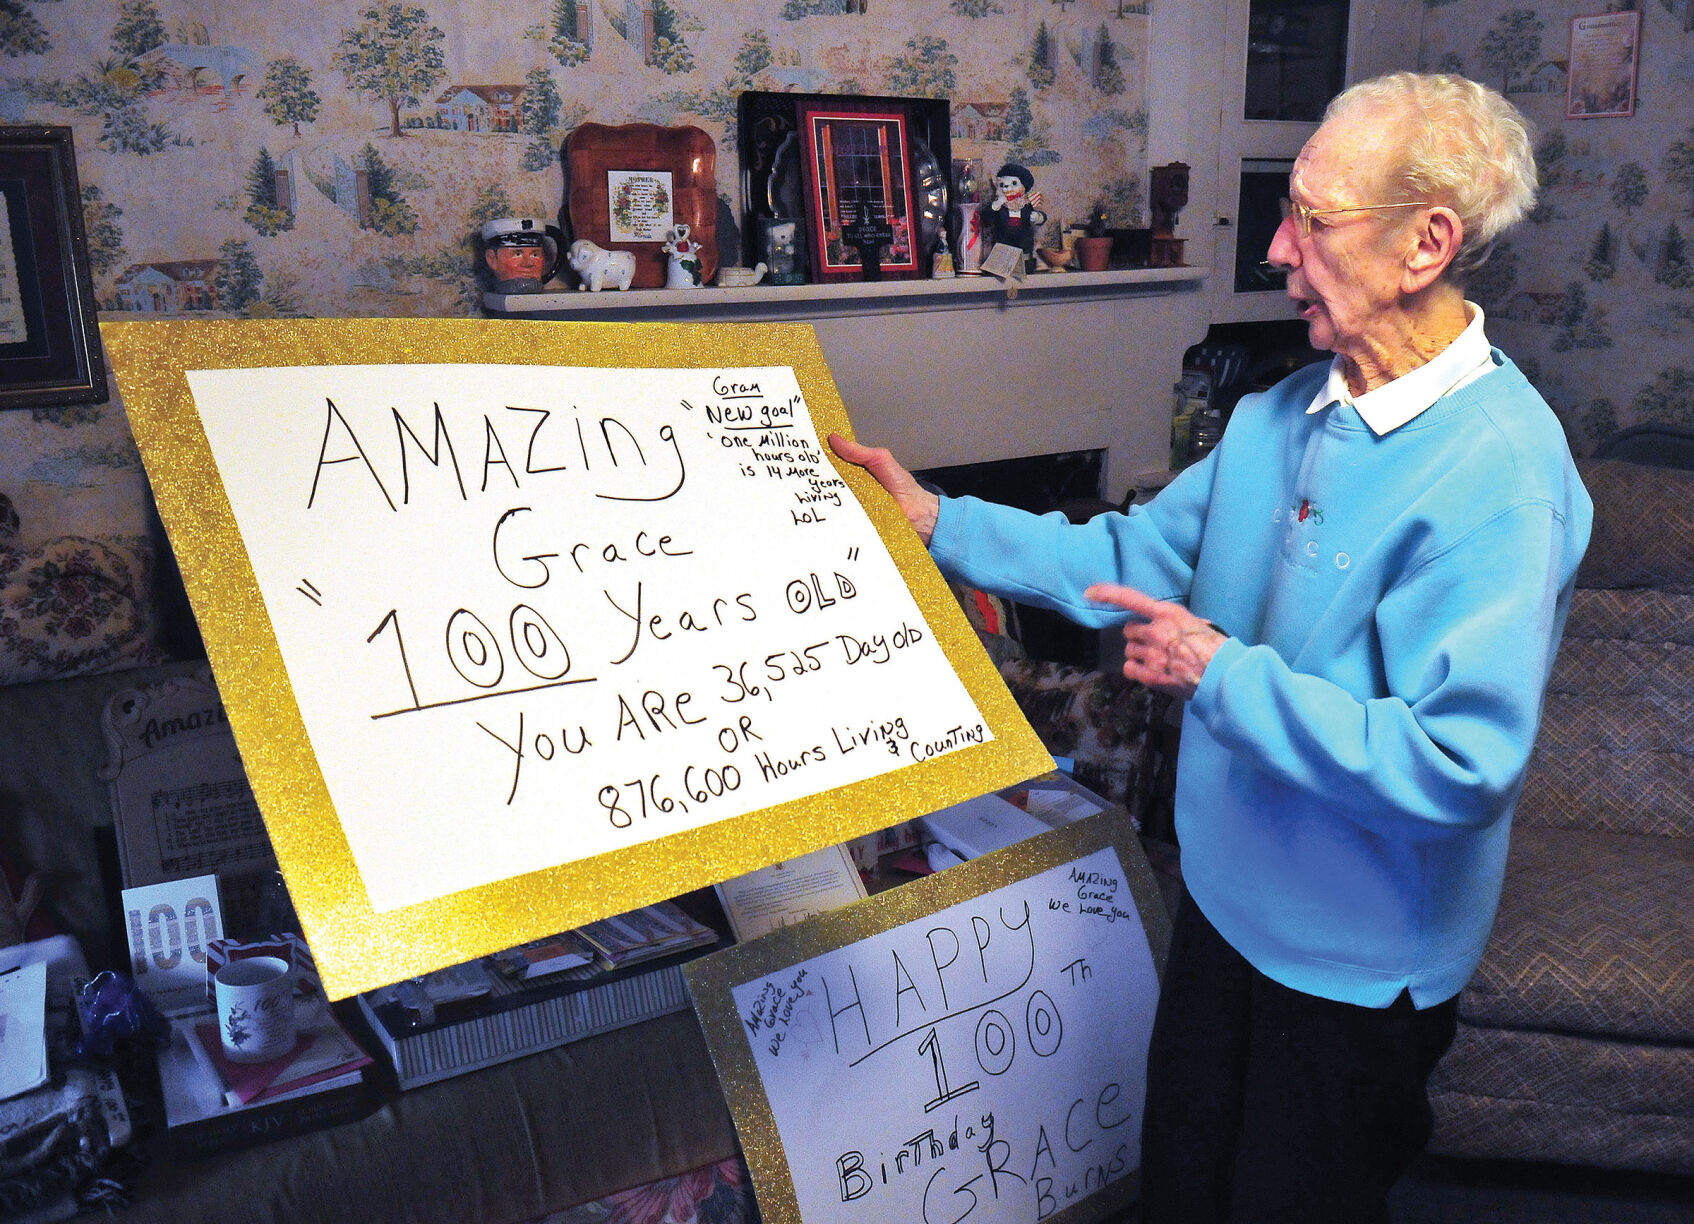 AMAZing
Grace
"100 Years OLD"
You ARE 36,525 Day olD
OR
876,600 Hours Living
& CounTing
Gram
"New goal"
'One Million
hours old'
is 14 More
years
Living
LOL
HAPPY
100Th
BirThday
GRACE
BurNS
AMAZing
Grace
We Love you
AMAZing
Grace
We Love you
MOTHER
PEACE
Amazi
100
100
KJV